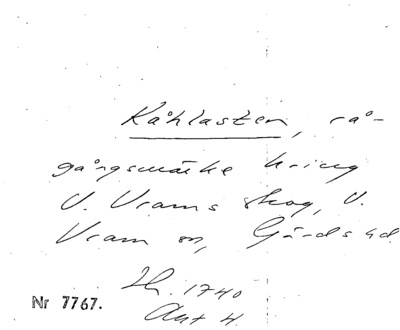 Kåhlasten, rå-
gångsmärke kring
V. Vrams skog, V.
Vram sn, Gärds hd.
Lh. 1740
Akt 4.
Nr 7767.